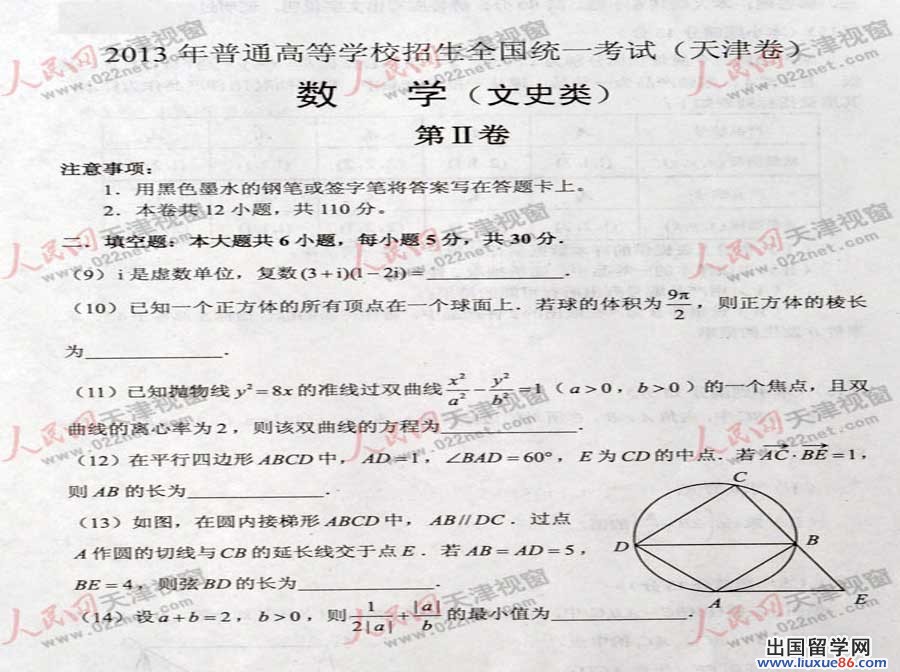 2013年普通高等学校招生全国统一考试（天津卷）
数 学（文史类）
第Ⅱ卷
注意事项：
1．用黑色墨水的钢笔或签字笔将答案写在答题卡上。
2．本卷共12小题，共110分。
二．填空题：本大题共6小题，每小题5分，共30分．
（9）i是虚数单位，复数(3+i)(1−2i)=____________．
（10）已知一个正方体的所有顶点在一个球面上．若球的体积为9π/2，则正方体的棱长
为____________．
（11）已知抛物线y²=8x的准线过双曲线x²/a²−y²/b²=1（a>0，b>0）的一个焦点，且双
曲线的离心率为2，则该双曲线的方程为____________．
（12）在平行四边形ABCD中，AD=1，∠BAD=60°，E为CD的中点．若AC·BE=1，
则AB的长为____________．
（13）如图，在圆内接梯形ABCD中，AB//DC．过点
A作圆的切线与CB的延长线交于点E．若AB=AD=5，
BE=4，则弦BD的长为____________．
（14）设a+b=2，b>0，则1/(2|a|)+|a|/b的最小值为____________．
C
D
B
A
E
人民网 天津视窗
www.022net.com
出国留学网
www.liuxue86.com